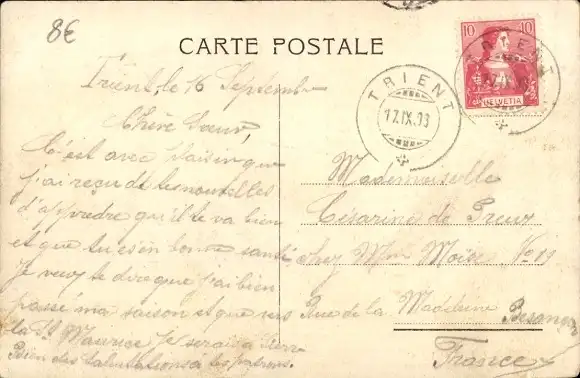 8€
CARTE POSTALE
10 10
HELVETIA
TRIENT
17.IX.
TRIENT
Trient le 16 Septembre
Chère Sœur,
C'est avec plaisir que
j'ai reçu de tes nouvelles
d'apprendre qu'il te va bien
et que tu es en bonne santé
Je veux te dire que j'ai bien
passé ma saison et que vers
la St Maurice Je serai à
Bien des salutations à tes patrons.
Mademoiselle
Césarine de Preux
chez Mme No 19
Rue de la Madeleine Besançon
France